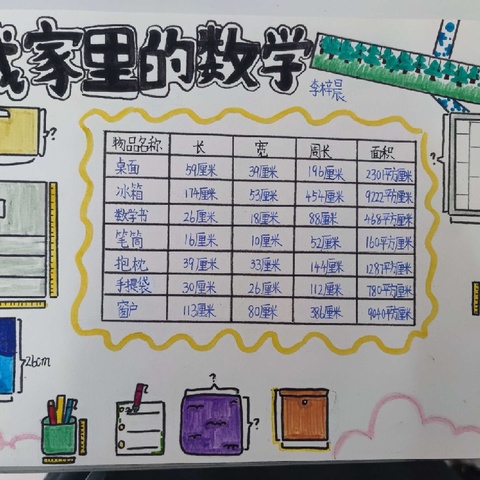 我家里的数学
李梓晨
物品名称 长 宽 周长 面积
桌面 59厘米 39厘米 196厘米 2301平方厘米
冰箱 174厘米 53厘米 454厘米 9222平方厘米
数学书 26厘米 18厘米 88厘米 468平方厘米
笔筒 16厘米 10厘米 52厘米 160平方厘米
抱枕 39厘米 33厘米 144厘米 1287平方厘米
手提袋 30厘米 26厘米 112厘米 780平方厘米
窗户 113厘米 80厘米 386厘米 9040平方厘米
?
?
26cm
?
?